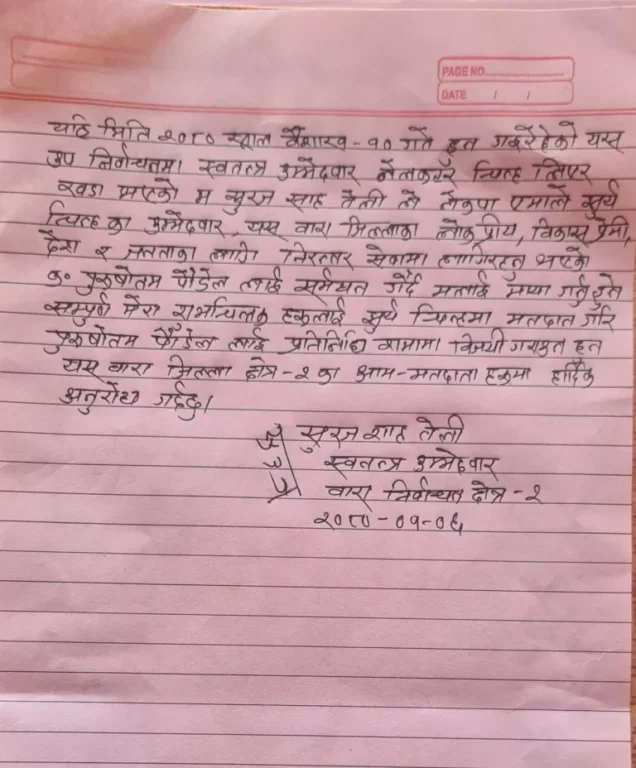 PAGE NO.
DATE / /
यहि मिति २०८० साल बैशाख - १० गते हुन गईरहेको यस
उप निर्वाचनमा स्वतन्त्र उम्मेदवार चिन्ह लिएर
खडा भएको म सुरज साह तेली ले नेकपा एमाले सुर्य
चिन्ह का उम्मेदवार, यस बारा जिल्लाका लोक प्रीय, विकास प्रेमी,
देश र जनताका लागी निरन्तर सेवामा लागिरहनु भएको
क० पुरुषोतम पौडेल लाई सर्मथन गर्दै मलाई गर्नु हुने
सम्पुर्ण मेरा शुभचिन्तक हरुलाई सुर्य चिन्हमा मतदान गरि
पुरुषोतम पौडेल लाई प्रतिनिधि सभामा विजयी गराउन हुन
यस बारा जिल्ला क्षेत्र - २ का आम-मतदाता हरुमा हार्दिक
अनुरोध गर्दछु।
सुरज शाह तेली
स्वतन्त्र उम्मेदवार
बारा निर्वाचन क्षेत्र - २
२०८० - ०१ - ०६